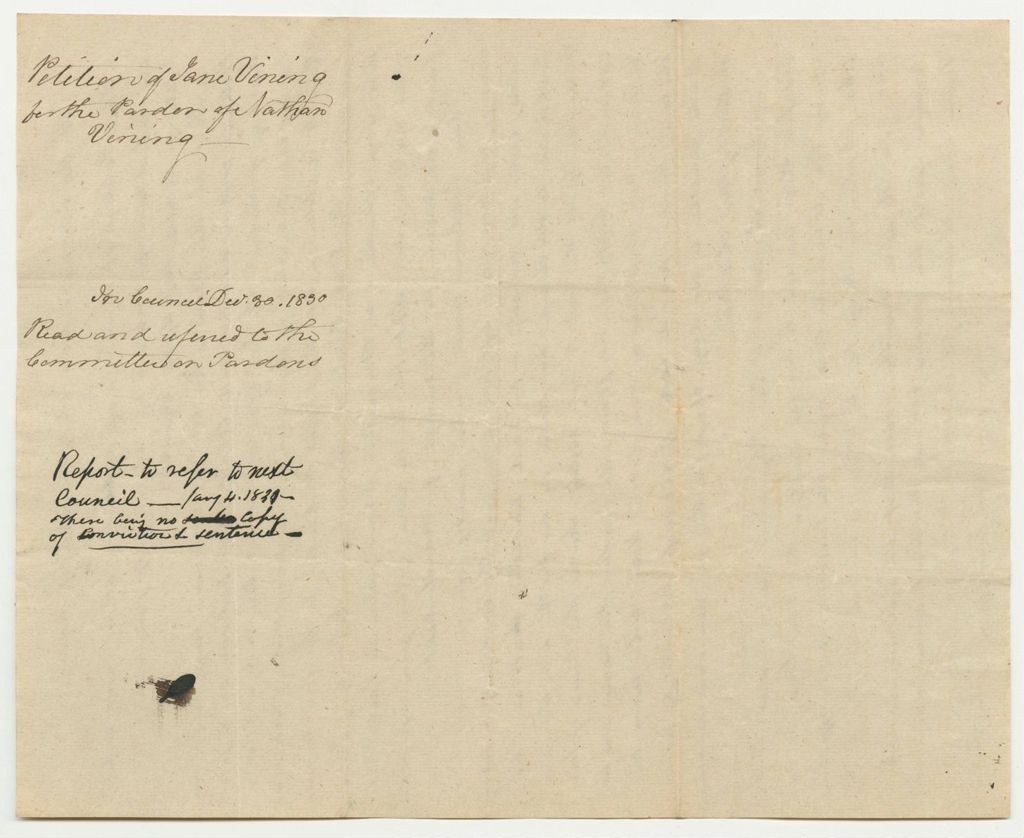 Petition of Jane Vining
for the Pardon of Nathan
Vining
In Council Dec. 30. 1830
Read and referred to the
Committee on Pardons
Report - to refer to next
Council — Jany 4. 1831 -
there being no Copy
of Conviction & sentence -